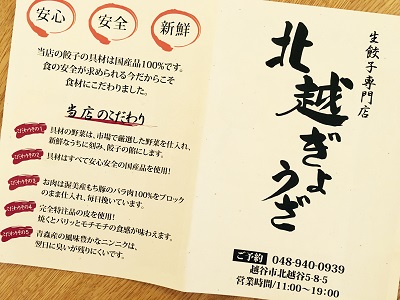 安心
安全
新鮮
当店の餃子の具材は国産品100%です。
食の安全が求められる今だからこそ
食材にこだわりました。
当店のこだわり
こだわりその1
具材の野菜は、市場で厳選した野菜を仕入れ、
新鮮なうちに刻み、餃子の餡にします。
こだわりその2
具材はすべて安心安全の国産品を使用!
こだわりその3
お肉は渥美産もち豚のバラ肉100%をブロック
のまま仕入れ、毎日挽いています。
こだわりその4
完全特注品の皮を使用!
焼くとパリッとモチモチの食感が味わえます。
こだわりその5
青森産の風味豊かなニンニクは、
翌日に臭いが残りにくいです。
生餃子専門店
北越ぎょうざ
ご予約 048-940-0939
越谷市北越谷5-8-5
営業時間/11:00~19:00